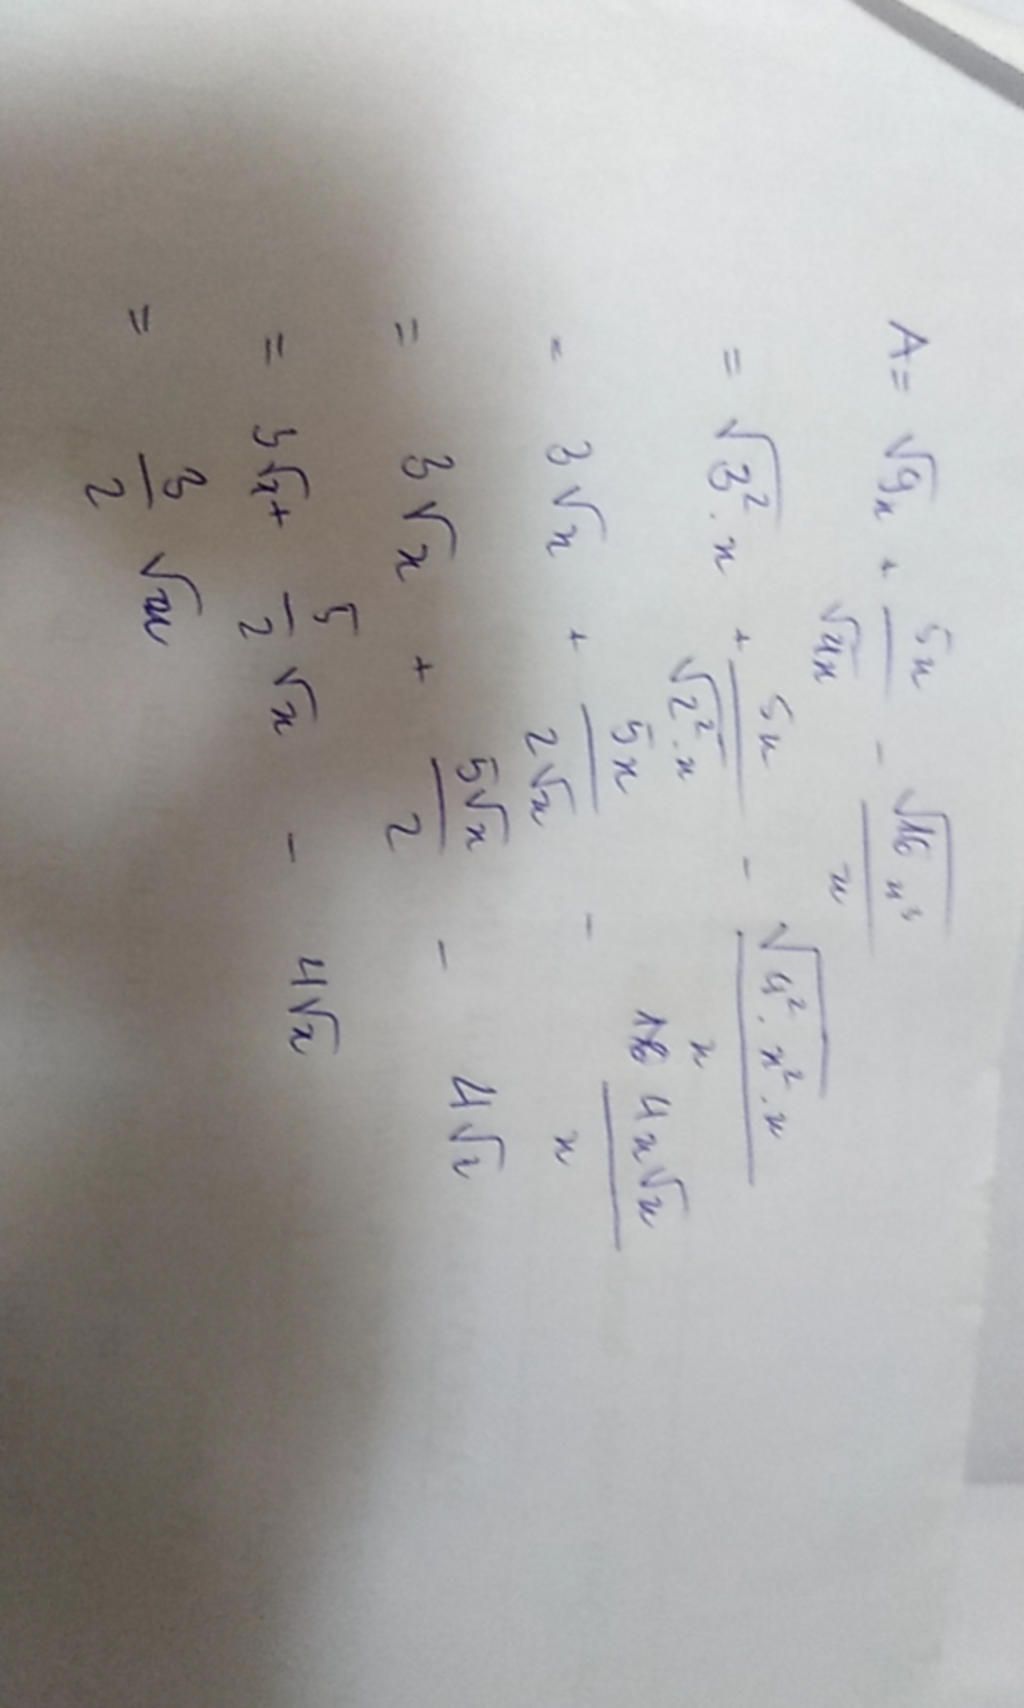 A = √9x + 5x/√4x - √16x³/x
= √3².x + 5x/√2².x - √4².x².x/x
= 3√x + 5x/2√x - 4x√x/x
= 3√x + 5√x/2 - 4√x
= 3√x + 5/2 √x - 4√x
= 3/2 √x